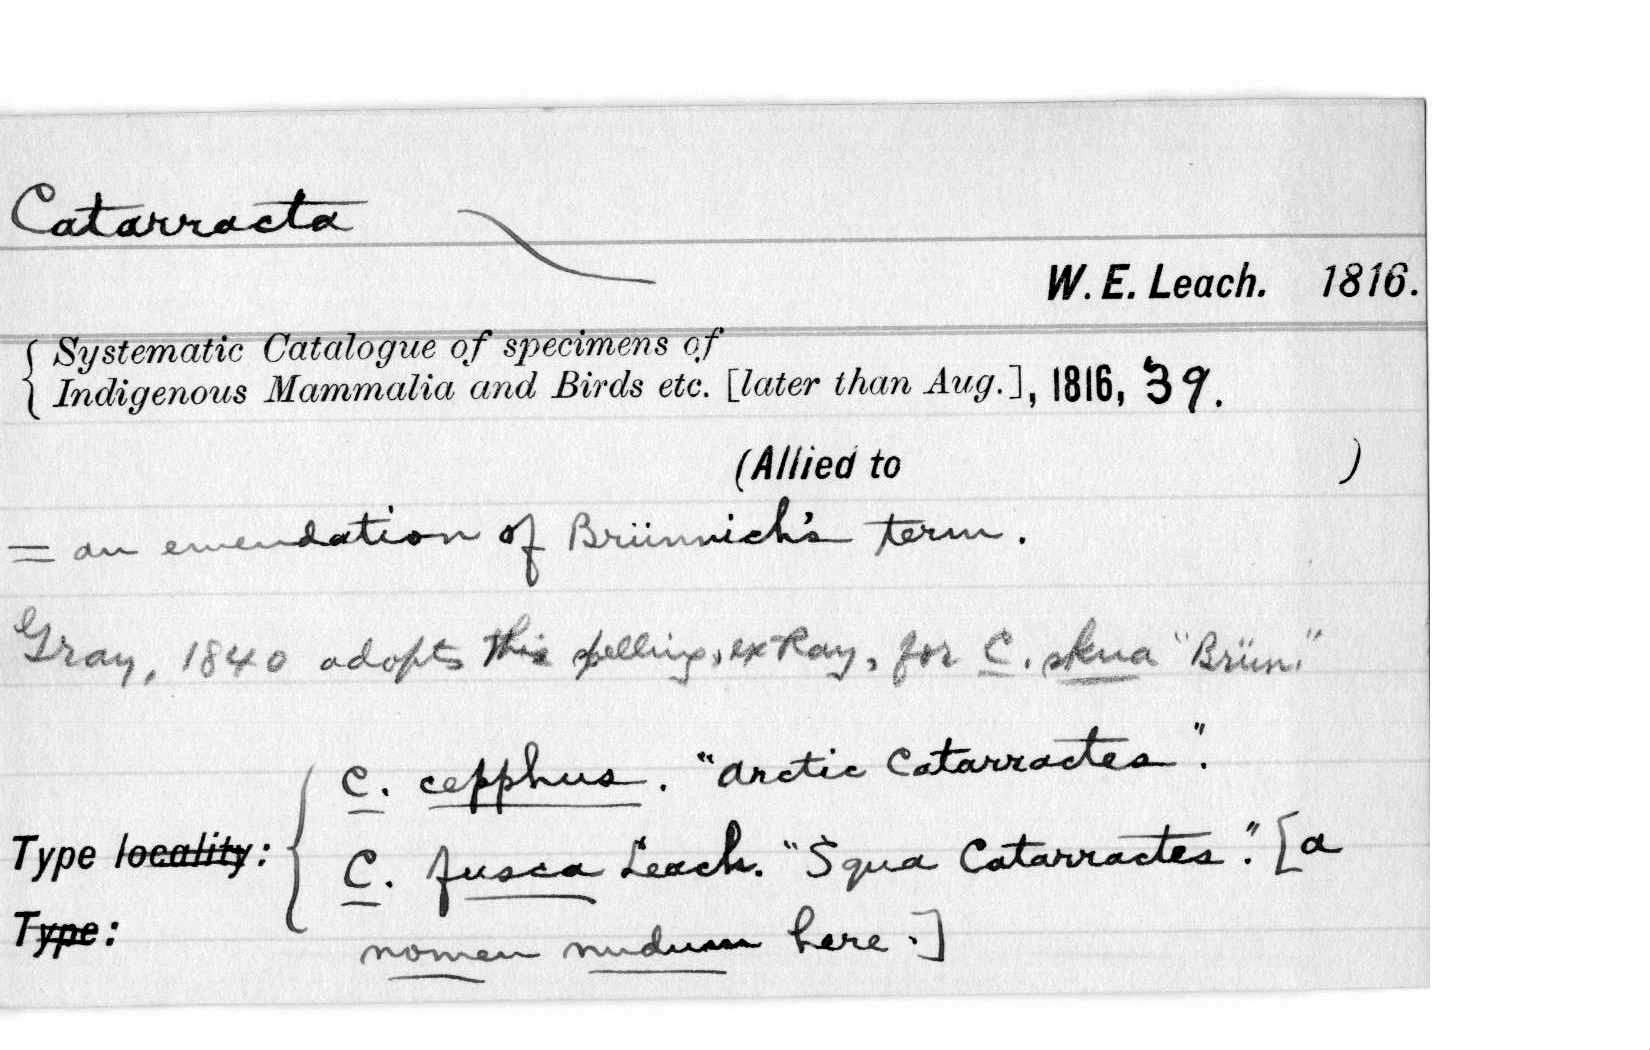 Catarracta
W. E. Leach. 1816.
Systematic Catalogue of specimens of
Indigenous Mammalia and Birds etc. [later than Aug.], 1816, 39.
(Allied to )
= an emendation of Brünnich's term.
Gray, 1840 adopts this spelling, ex Ray, for C. skua "Brün."
C. cepphus. "Arctic Catarractes".
Type locality: C. fusca Leach. "Squa Catarractes". [a
Type: nomen nudum here.]